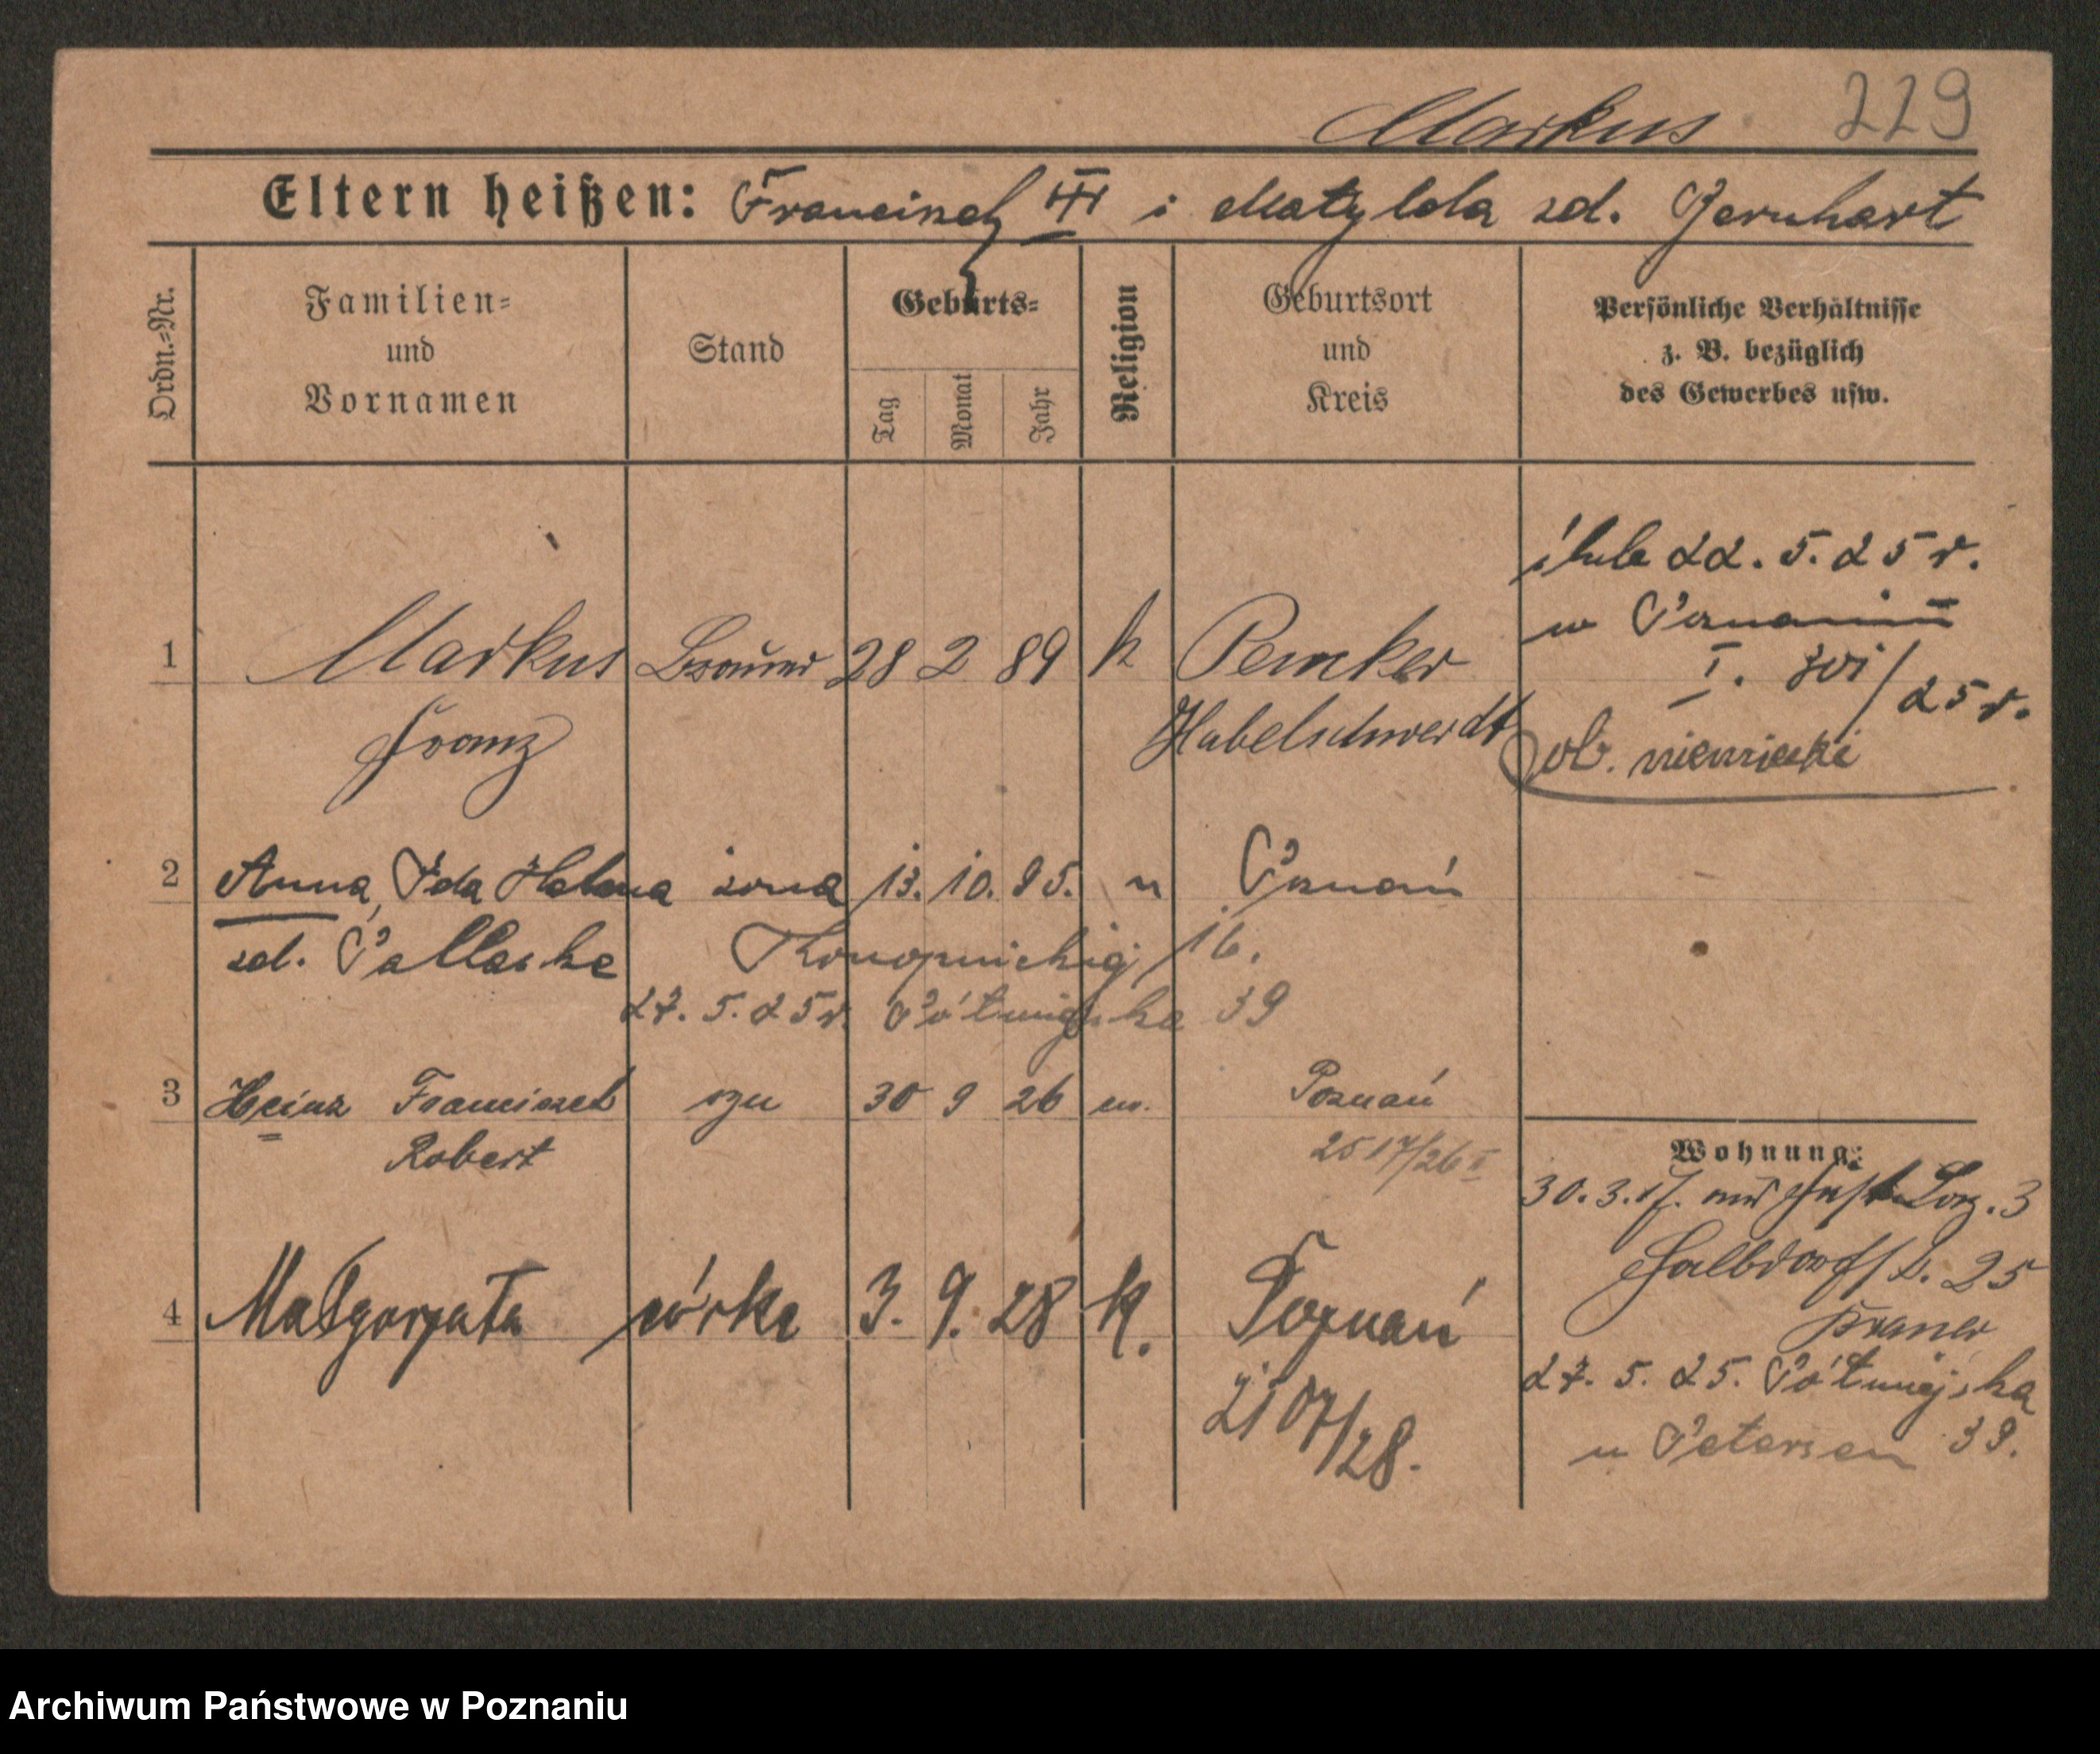 Markus 229
Eltern heißen: Franciszek i Matylda zd. Gernhart
Ordn.=Nr.
Familien=
und
Vornamen
Stand
Geburts=
Tag
Monat
Jahr
Religion
Geburtsort
und
Kreis
Persönliche Verhältnisse
z. B. bezüglich
des Gewerbes usw.
ślub 22. 5. 25 r.
w Poznaniu
1 Markus 28 2 89 k Pemker
I. 25 r.
Franz Habelschwerdt
ob. niemiecki
2 Anna, Ida Helena żona 13. 10. 95. Poznań
zd. Pallaske 16.
27. 5. 25 r. Półwiejska 39
3 Heinz Franciszek syn 30 9 26 Poznań
Robert 2517/26 I
Wohnung:
30. 3. 17. 3
Halbdorfstr. 25
4 Małgorzata córka 3. 9. 28 k. Poznań
27. 5. 25. Półwiejska
2107/28.
u Petersen 39.
Archiwum Państwowe w Poznaniu